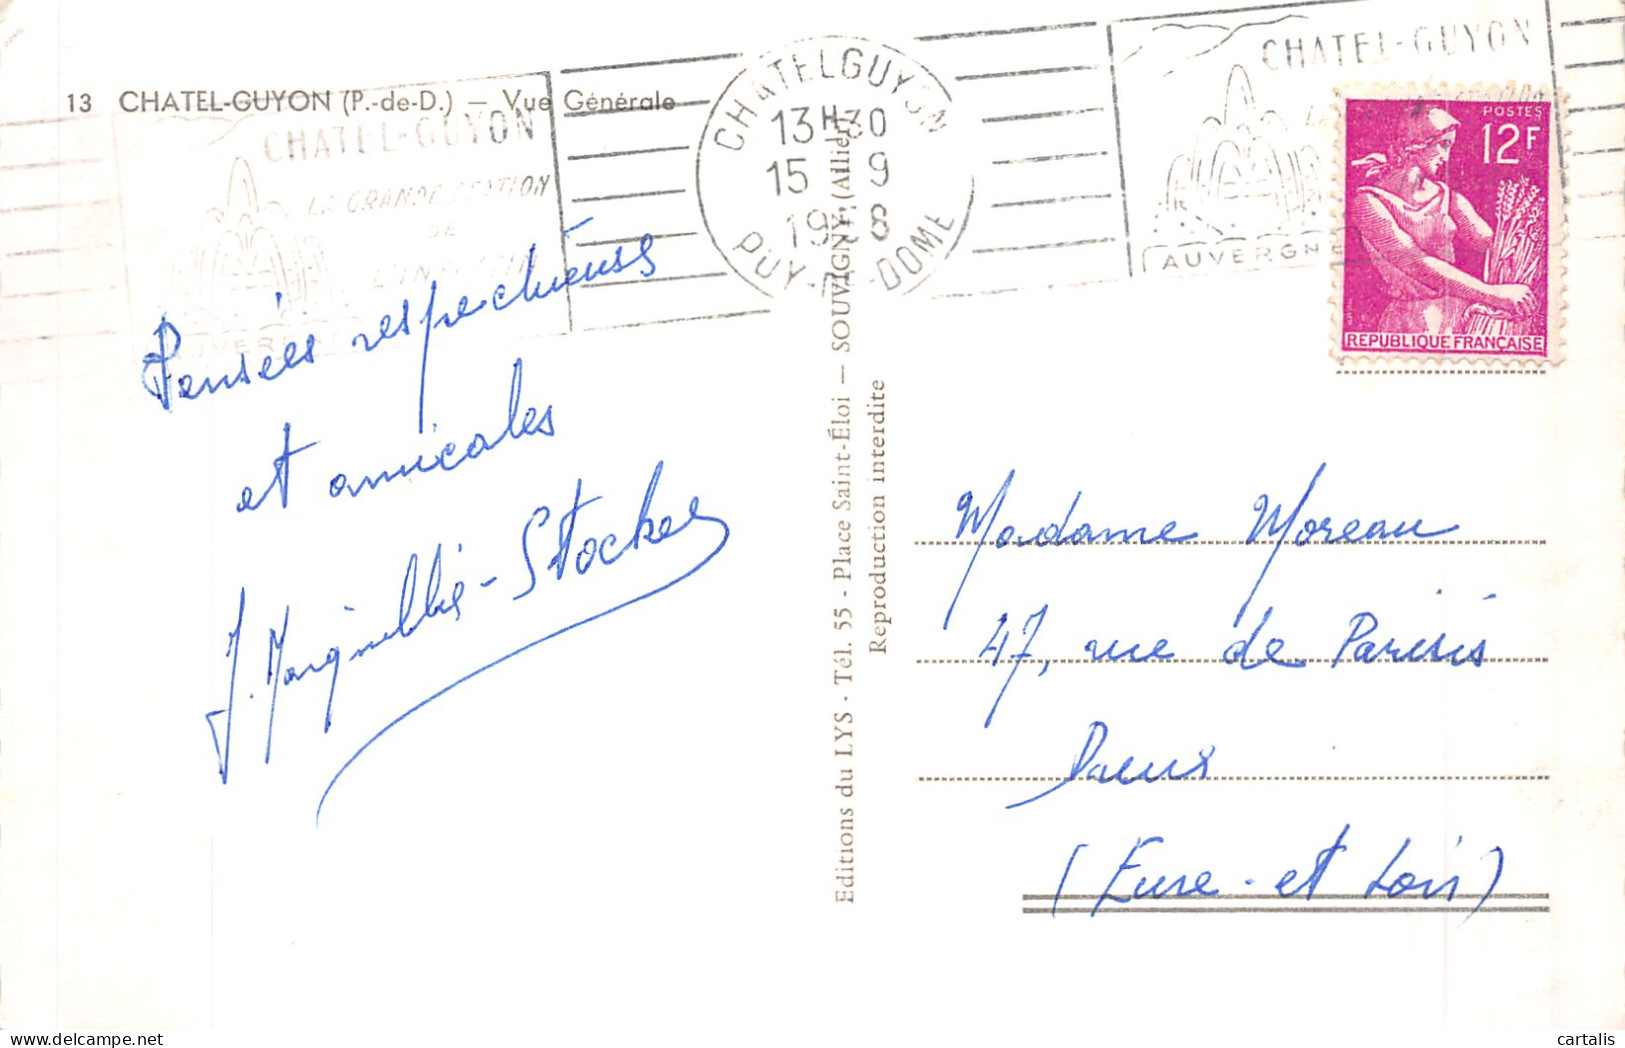 13 CHATEL-GUYON (P.-de-D.) — Vue Générale
CHATEL-GUYON
LA GRANDE STATION
DE
AUVERGNE
CHATELGUYON
13H30
15 9
19 8
PUY- -DOME
CHATEL-GUYON
AUVERGNE
POSTES
12F
REPUBLIQUE FRANÇAISE
Pensées respectueuses
et amicales
Editions du LYS - Tél. 55 - Place Saint-Éloi — SOUVIGNY (Allier)
Reproduction interdite
Madame Moreau
47, rue de Parisis
Dreux
(Eure-et Loir)
cartalis